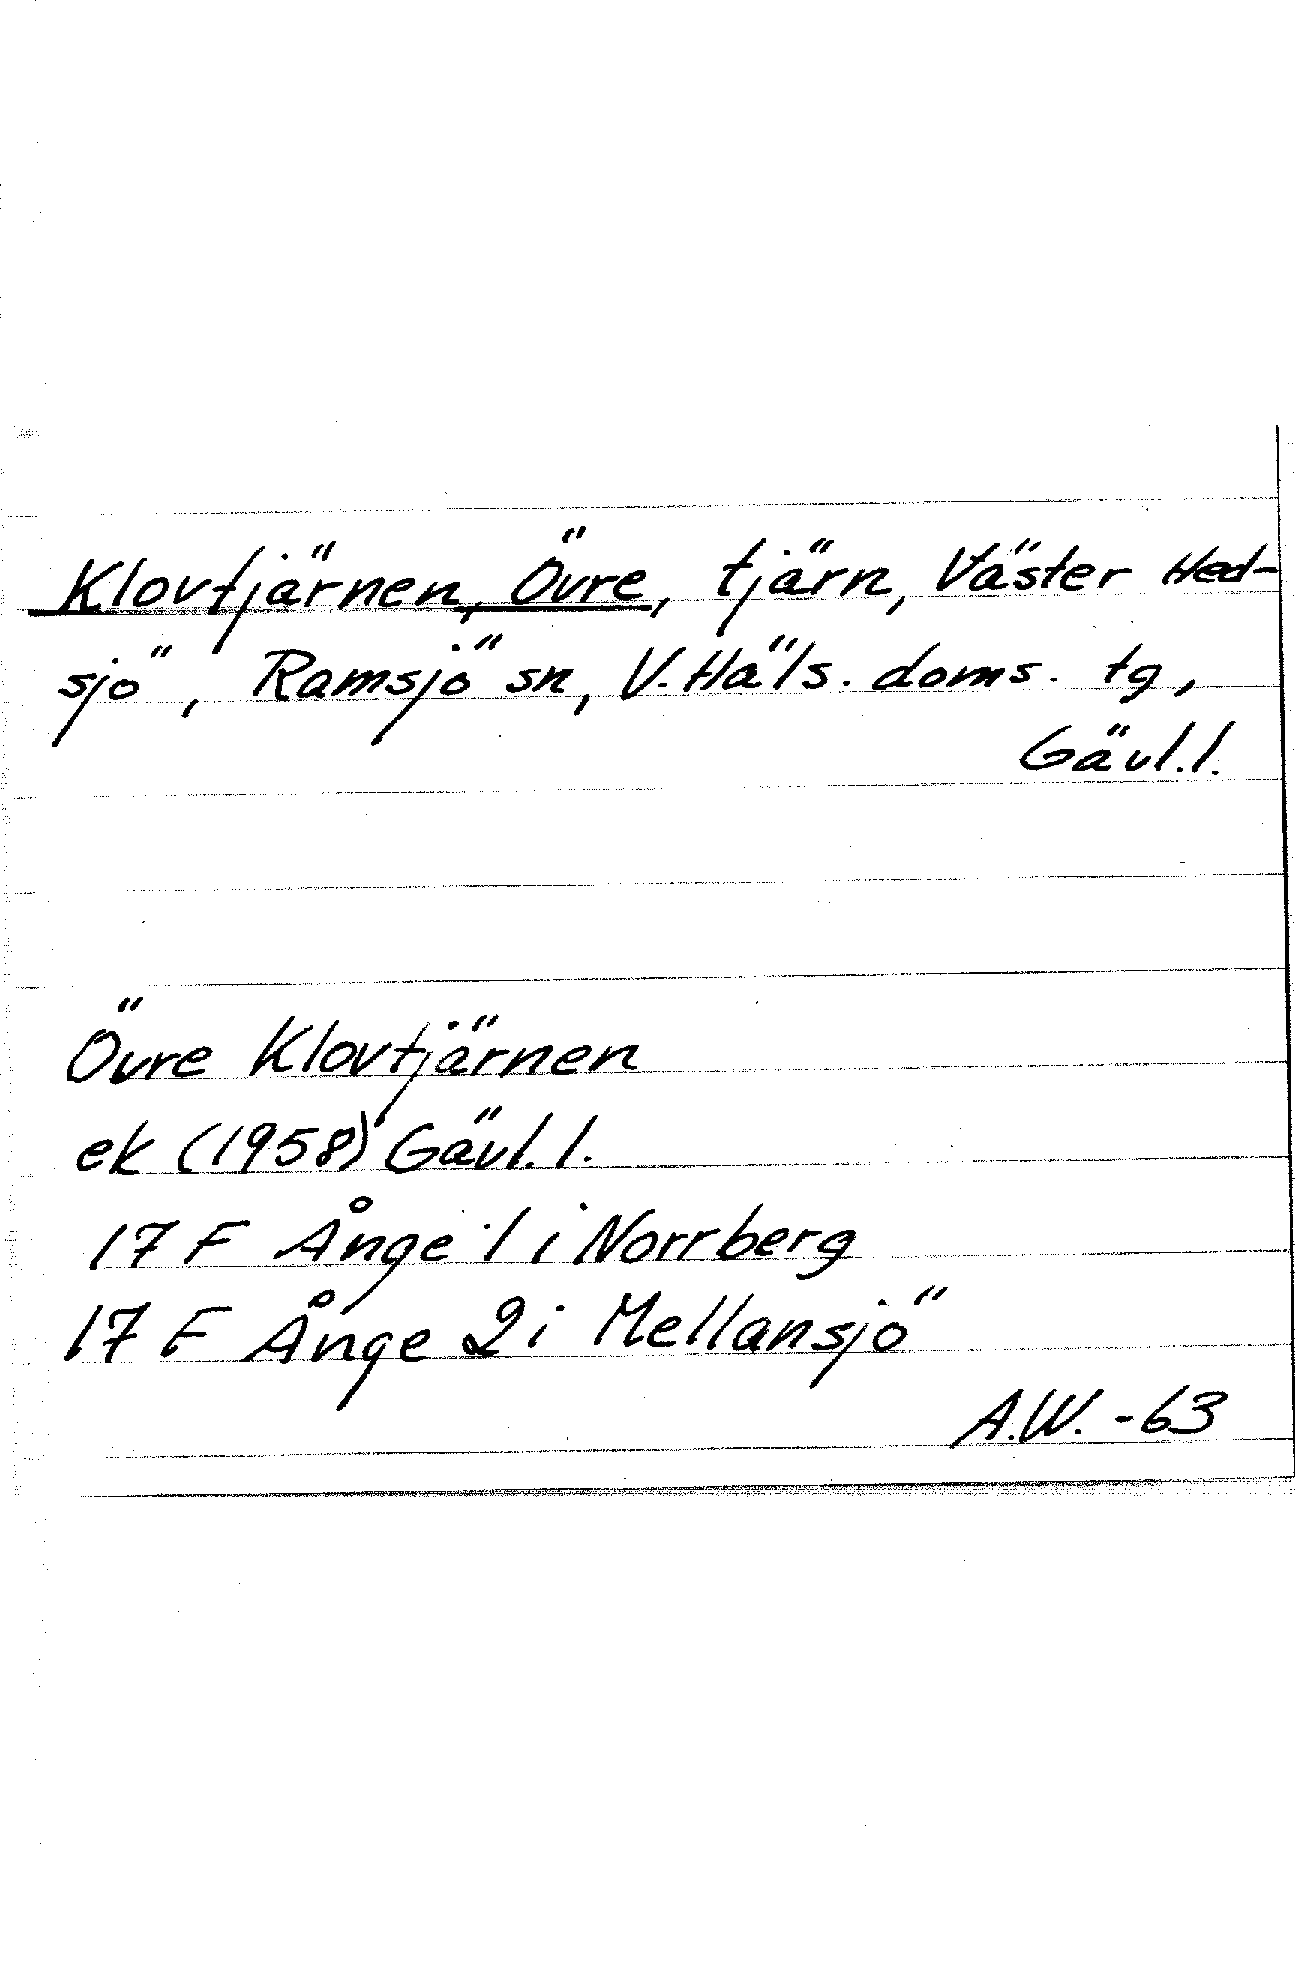 Klovtjärnen, Övre, tjärn, Väster Hed-
sjö, Ramsjö sn, V. Häls. doms. tg,
Gävl. l.
Övre Klovtjärnen
ek (1958) Gävl. l.
17 F Ånge 1 i Norrberg
17 F Ånge 2 i Mellansjö
A.W. -63